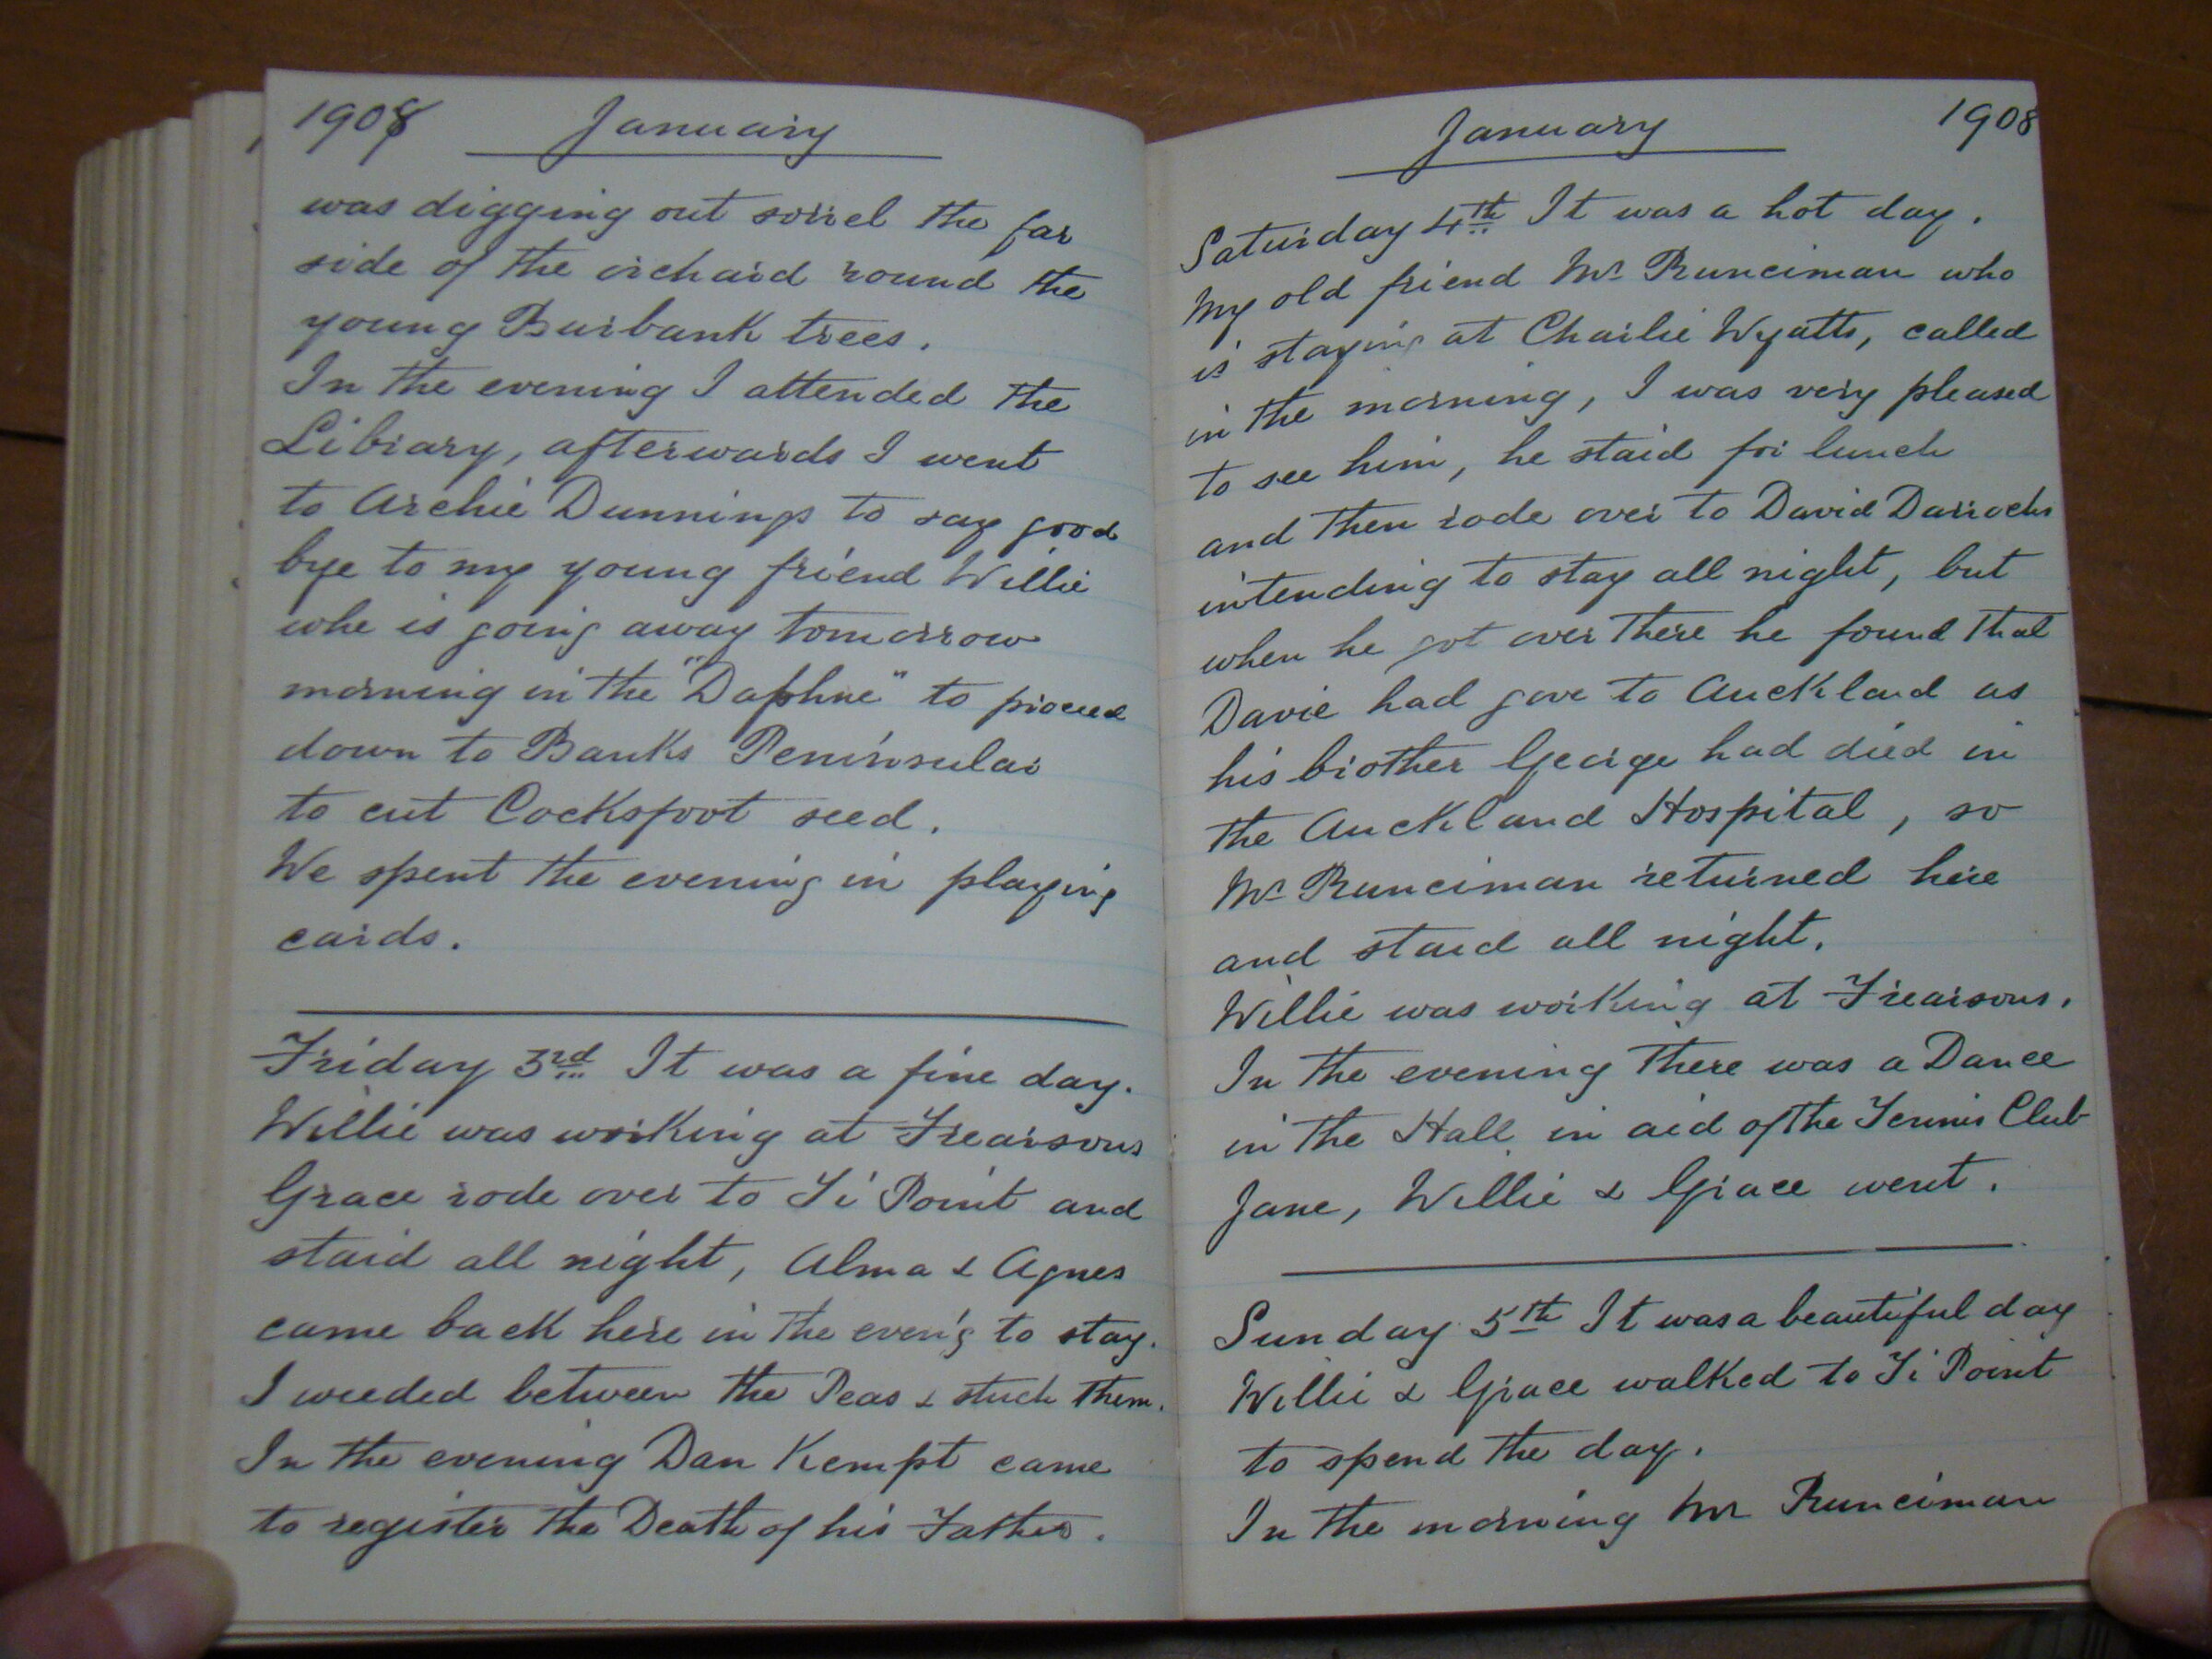 1908 January
was digging out sorrel the far
side of the orchard round the
young Burbank trees.
In the evening I attended the
Library, afterwards I went
to Archie Dunnings to say good
bye to my young friend Willie
who is going away tomorrow
morning in the "Daphne" to proceed
down to Banks Peninsular
to cut Cocksfoot seed.
We spent the evening in playing
cards.
Friday 3rd It was a fine day.
Willie was working at Frearsons
Grace rode over to Ti Point and
staid all night, Alma & Agnes
came back here in the even'g to stay.
I weeded between the Peas & stuck them.
In the evening Dan Kempt came
to register the Death of his Father.
January 1908
Saturday 4th It was a hot day.
My old friend Mr Runciman who
is staying at Charlie Wyatts, called
in the morning, I was very pleased
to see him, he staid for lunch
and then rode over to David Darrochs
intending to stay all night, but
when he got over there he found that
Davie had gone to Auckland as
his brother George had died in
the Auckland Hospital, so
Mr Runciman returned here
and staid all night.
Willie was working at Frearsons.
In the evening there was a Dance
in the Hall in aid of the Tennis Club
Jane, Willie & Grace went.
Sunday 5th It was a beautiful day
Willie & Grace walked to Ti Point
to spend the day.
In the morning Mr Runciman